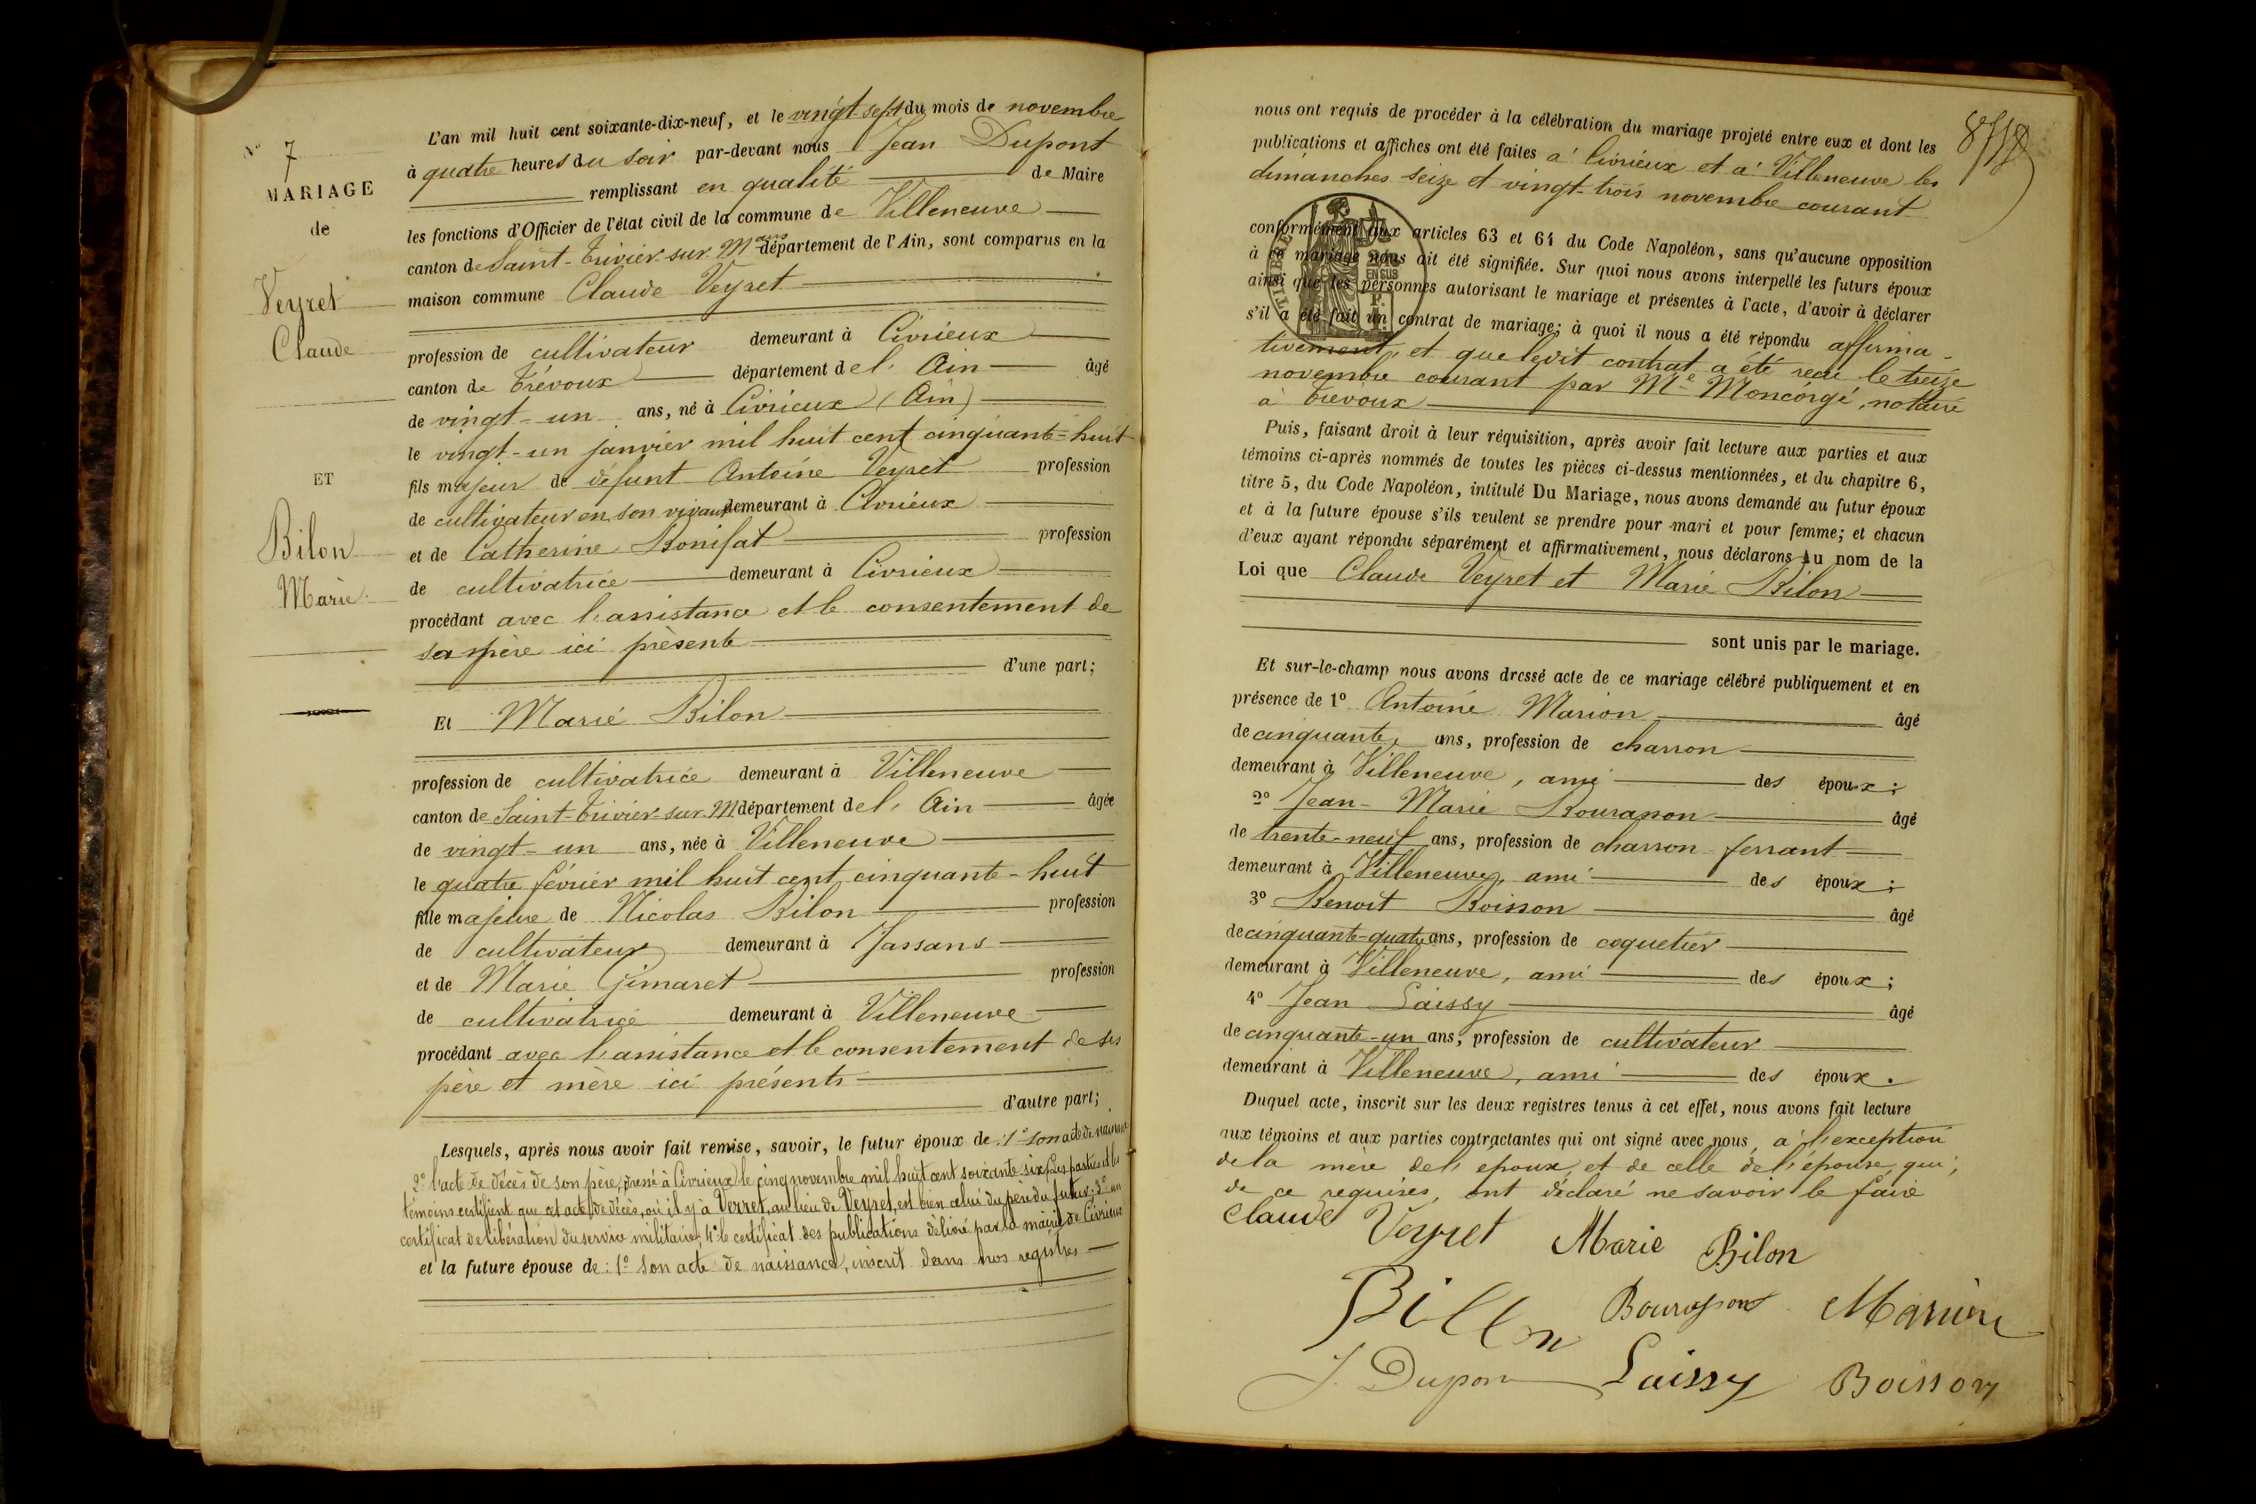 N° 7
MARIAGE
de
Veyret
Claude
ET
Bilon
Marie
L'an mil huit cent soixante-dix-neuf, et le vingt-sept du mois de novembre
à quatre heures du soir par-devant nous Jean Dupont
remplissant en qualité de Maire
les fonctions d'Officier de l'état civil de la commune de Villeneuve
canton de Saint-Trivier-sur-Mans département de l'Ain, sont comparus en la
maison commune Claude Veyret
profession de cultivateur demeurant à Civrieux
canton de Trévoux département de l'Ain âgé
de vingt-un ans, né à Civrieux (Ain)
le vingt-un janvier mil huit cent cinquante-huit
fils majeur de défunt Antoine Veyret profession
de cultivateur en son vivant demeurant à Civrieux
et de Catherine Bonifat profession
de cultivatrice demeurant à Civrieux
procédant avec l'assistance et le consentement de
sa mère ici présente
d'une part;
Et Marie Bilon
profession de cultivatrice demeurant à Villeneuve
canton de Saint-Trivier-sur-M département de l'Ain âgée
de vingt-un ans, née à Villeneuve
le quatre février mil huit cent cinquante-huit
fille majeure de Nicolas Bilon profession
de cultivateur demeurant à Jassans
et de Marie Gimaret profession
de cultivatrice demeurant à Villeneuve
procédant avec l'assistance et le consentement de ses
père et mère ici présents
d'autre part;
Lesquels, après nous avoir fait remise, savoir, le futur époux de: 1° son acte de naissance
2° l'acte de décès de son père, dressé à Civrieux le cinq novembre mil huit cent soixante six, les parties et les
témoins certifient que cet acte de décès, où il y a Verret, au lieu de Veyret, est bien celui du père du futur; 3° un
certificat de libération du service militaire; 4° le certificat des publications délivré par la mairie de Civrieux
et la future épouse de: 1° son acte de naissance, inscrit dans nos registres
nous ont requis de procéder à la célébration du mariage projeté entre eux et dont les
publications et affiches ont été faites à Civrieux et à Villeneuve les
dimanches seize et vingt-trois novembre courant
conformément aux articles 63 et 64 du Code Napoléon, sans qu'aucune opposition
à ce mariage nous ait été signifiée. Sur quoi nous avons interpellé les futurs époux
ainsi que les personnes autorisant le mariage et présentes à l'acte, d'avoir à déclarer
s'il a été fait un contrat de mariage; à quoi il nous a été répondu affirma-
tivement, et que ledit contrat a été reçu le treize
novembre courant par Me Moncorgé, notaire
à Trévoux
TIMBRE
EN SUS
Puis, faisant droit à leur réquisition, après avoir fait lecture aux parties et aux
témoins ci-après nommés de toutes les pièces ci-dessus mentionnées, et du chapitre 6,
titre 5, du Code Napoléon, intitulé Du Mariage, nous avons demandé au futur époux
et à la future épouse s'ils veulent se prendre pour mari et pour femme; et chacun
d'eux ayant répondu séparément et affirmativement, nous déclarons au nom de la
Loi que Claude Veyret et Marie Bilon
sont unis par le mariage.
Et sur-le-champ nous avons dressé acte de ce mariage célébré publiquement et en
présence de 1° Antoine Marion âgé
de cinquante ans, profession de charron
demeurant à Villeneuve, ami des époux;
2° Jean-Marie Bourapon âgé
de trente-neuf ans, profession de charron ferrant
demeurant à Villeneuve, ami des époux;
3° Benoit Boisson âgé
de cinquante-quatre ans, profession de coquetier
demeurant à Villeneuve, ami des époux;
4° Jean Laissy âgé
de cinquante-un ans, profession de cultivateur
demeurant à Villeneuve, ami des époux.
Duquel acte, inscrit sur les deux registres tenus à cet effet, nous avons fait lecture
aux témoins et aux parties contractantes qui ont signé avec nous, à l'exception
de la mère de l'époux, et de celle de l'épouse, qui,
de ce requises, ont déclaré ne savoir le faire
Claude Veyret Marie Bilon
Billon Bourapon Marion
J. Dupon Laissy Boisson